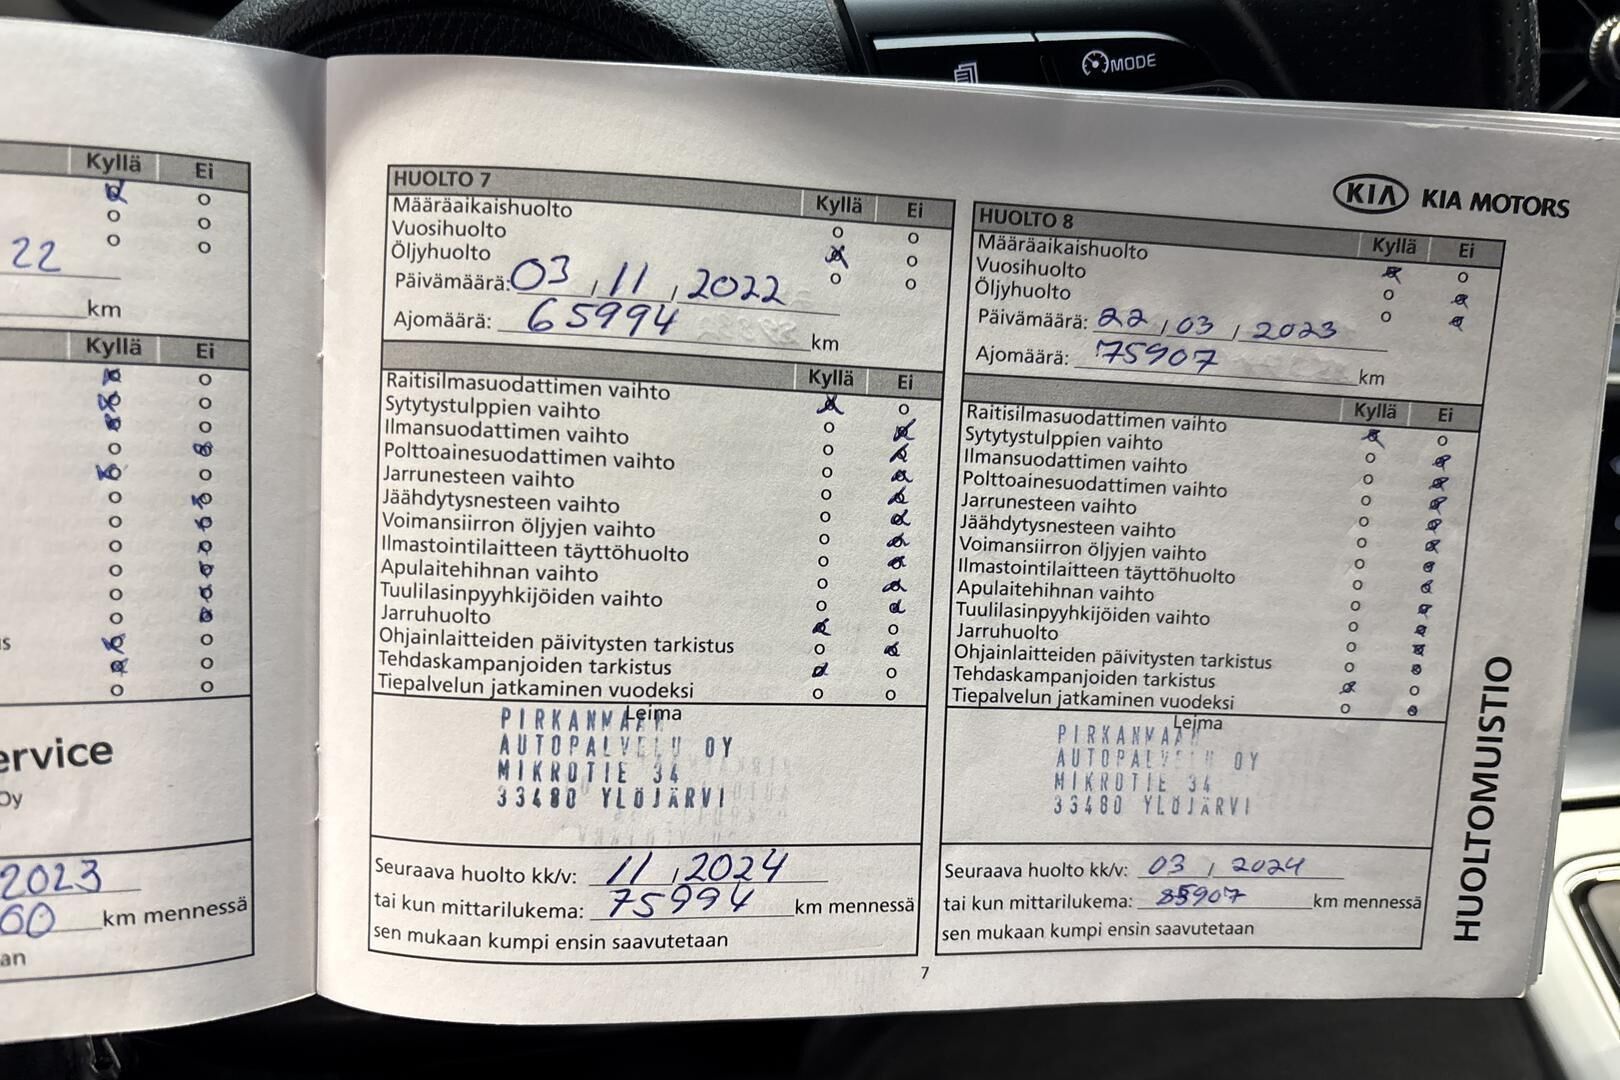 MODE
Kyllä Ei
22
km
Kyllä Ei
ervice
Oy
2023
60 km mennessä
an
HUOLTO 7
Kyllä Ei
Määräaikaishuolto
Vuosihuolto
Öljyhuolto
Päivämäärä: 03 / 11 / 2022
Ajomäärä: 65994 km
Kyllä Ei
Raitisilmasuodattimen vaihto
Sytytystulppien vaihto
Ilmansuodattimen vaihto
Polttoainesuodattimen vaihto
Jarrunesteen vaihto
Jäähdytysnesteen vaihto
Voimansiirron öljyjen vaihto
Ilmastointilaitteen täyttöhuolto
Apulaitehihnan vaihto
Tuulilasinpyyhkijöiden vaihto
Jarruhuolto
Ohjainlaitteiden päivitysten tarkistus
Tehdaskampanjoiden tarkistus
Tiepalvelun jatkaminen vuodeksi
Leima
PIRKANMAAN
AUTOPALVELU OY
MIKROTIE 34
33480 YLÖJÄRVI
Seuraava huolto kk/v: 11 / 2024
tai kun mittarilukema: 75994 km mennessä
sen mukaan kumpi ensin saavutetaan
7
KIA KIA MOTORS
HUOLTO 8
Kyllä Ei
Määräaikaishuolto
Vuosihuolto
Öljyhuolto
Päivämäärä: 22 / 03 / 2023
Ajomäärä: 75907 km
Kyllä Ei
Raitisilmasuodattimen vaihto
Sytytystulppien vaihto
Ilmansuodattimen vaihto
Polttoainesuodattimen vaihto
Jarrunesteen vaihto
Jäähdytysnesteen vaihto
Voimansiirron öljyjen vaihto
Ilmastointilaitteen täyttöhuolto
Apulaitehihnan vaihto
Tuulilasinpyyhkijöiden vaihto
Jarruhuolto
Ohjainlaitteiden päivitysten tarkistus
Tehdaskampanjoiden tarkistus
Tiepalvelun jatkaminen vuodeksi
Leima
PIRKANMAAN
AUTOPALVELU OY
MIKROTIE 34
33480 YLÖJÄRVI
Seuraava huolto kk/v: 03 / 2024
tai kun mittarilukema: 85907 km mennessä
sen mukaan kumpi ensin saavutetaan
HUOLTOMUISTIO